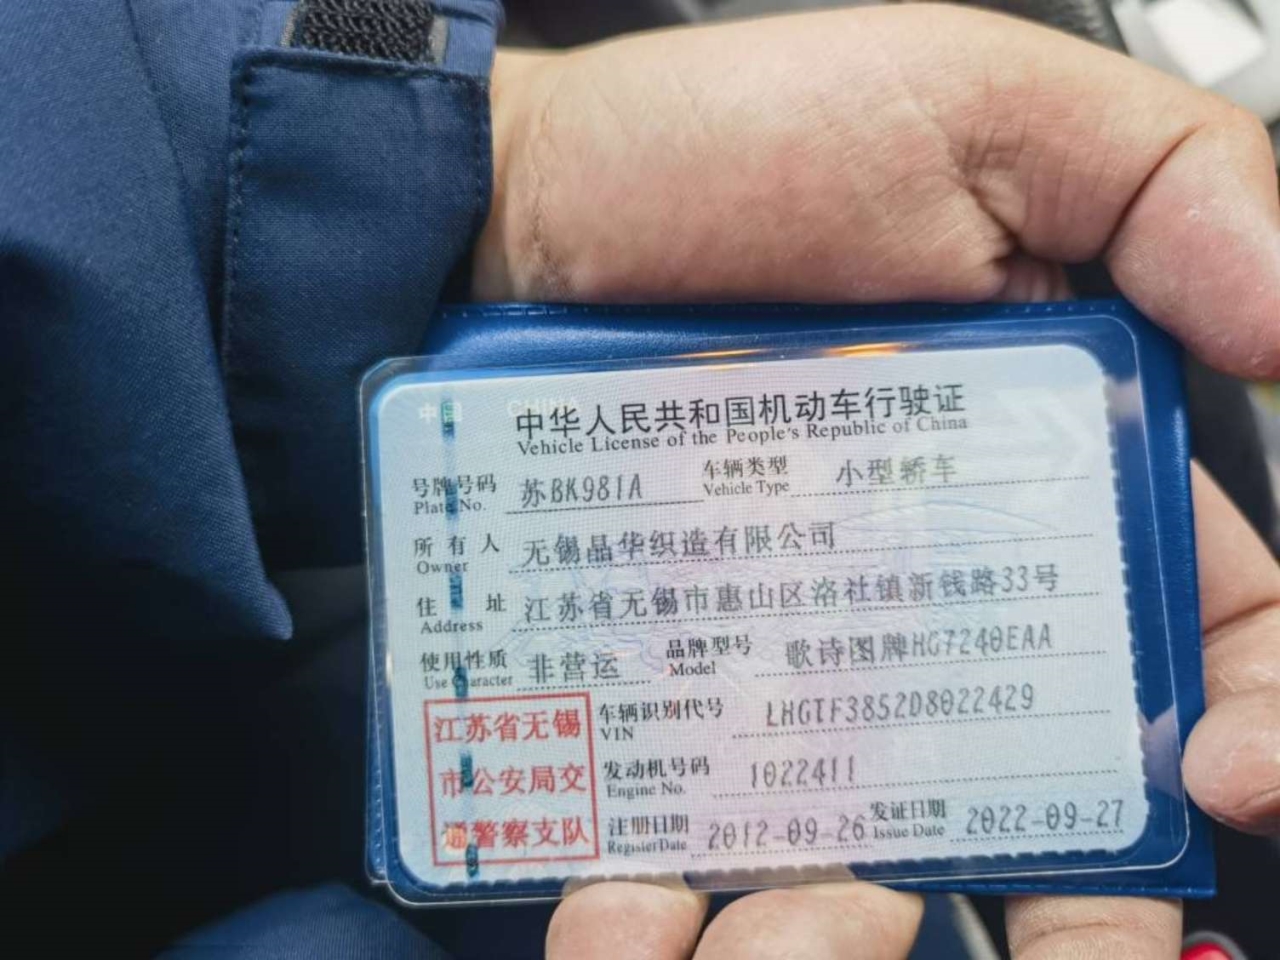 中国 CHINA
中华人民共和国机动车行驶证
Vehicle License of the People's Republic of China
号牌号码 苏BK981A 车辆类型 小型轿车
Plate No. Vehicle Type
所有人 无锡晶华织造有限公司
Owner
住址 江苏省无锡市惠山区洛社镇新钱路33号
Address
使用性质 非营运 品牌型号 歌诗图牌HG7240EAA
Use Character Model
江苏省无锡
市公安局交
通警察支队
车辆识别代号 LHGTF3852D8022429
VIN
发动机号码 1022411
Engine No.
注册日期 2012-09-26 发证日期 2022-09-27
Register Date Issue Date